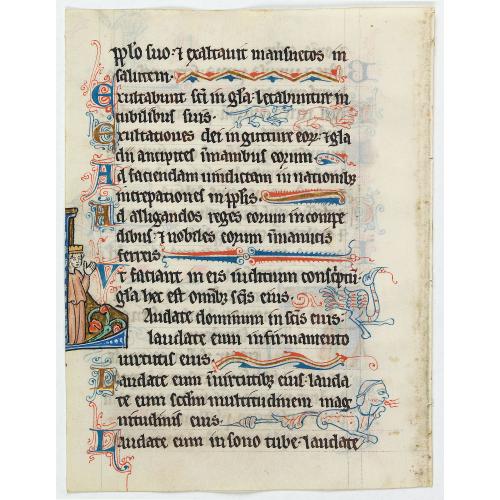 pplo suo· ⁊ exaltauit mansuetos in
salutem·
Exultabunt sc̄i in gl̄a· letabuntur in
cubilibus suis·
Exultationes dei in gutture eor̄· ⁊ gla
dii ancipites ī manibus eorum·
Ad faciendam uindictam in nationibꝫ
increpationes in pplis·
Ad alligandos reges eorum in compe
dibus· ⁊ nobiles eorum ī manicis
ferreis·
Vt faciant in eis iudicium conscptū·
gl̄a hec est omibꝫ scīs eius·
Laudate dominum in scīs eius·
laudate eum in firmamento
uirtutis eius·
Laudate eum ī uirtutibꝫ eius· lauda
te eum scdm multitudinem mag
nitudinis eius·
Laudate eum in sono tube· laudate